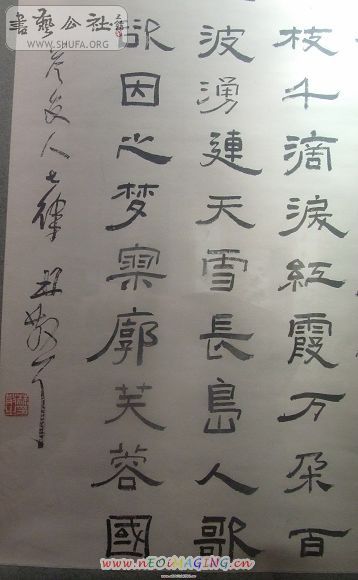 書藝公社
WWW.SHUFA.ORG
枝千滴淚紅霞万朵百
波湧連天雪長島人歌
欲因之梦寥廓芙蓉國
答友人七律
www.nEOiMAGING.cn